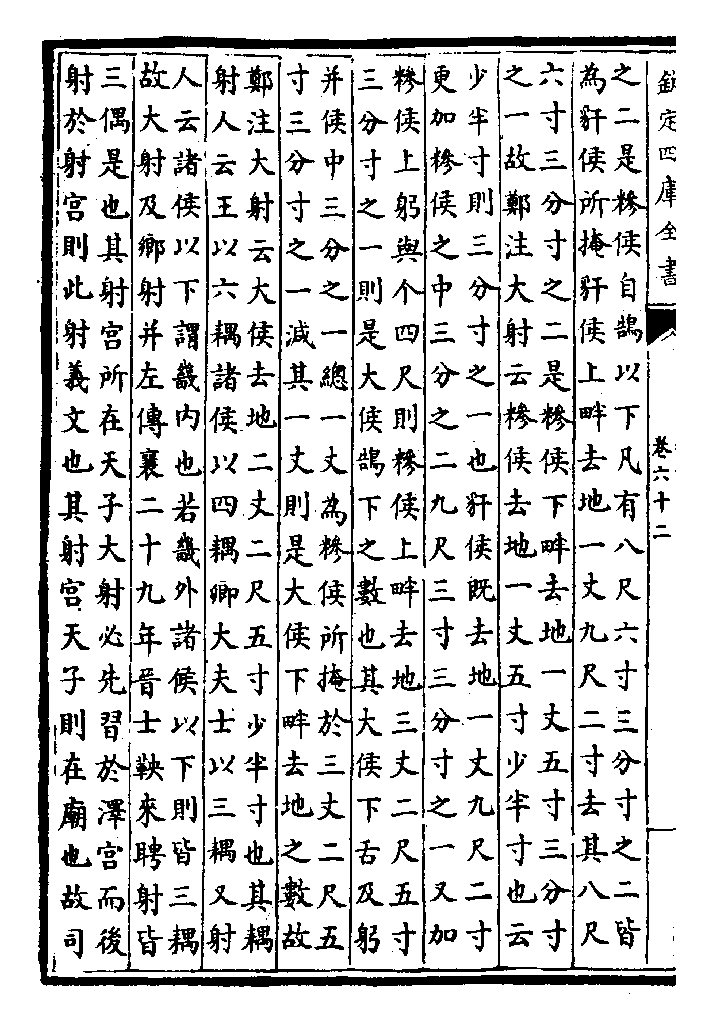 欽定四庫全書
卷六十二
之二是糝侯自鵠以下凡有八尺六寸三分寸之二皆
為豻侯所掩豻侯上畔去地一丈九尺二寸去其八尺
六寸三分寸之二是糝侯下畔去地一丈五寸三分寸
之一故鄭注大射云糝侯去地一丈五寸少半寸也云
少半寸則三分寸之一也豻侯既去地一丈九尺二寸
更加糝侯之中三分之二九尺三寸三分寸之一又加
糝侯上躬與个四尺則糝侯上畔去地三丈二尺五寸
三分寸之一則是大侯鵠下之數也其大侯下舌及躬
并侯中三分之一總一丈為糝侯所掩於三丈二尺五
寸三分寸之一減其一丈則是大侯下畔去地之數故
鄭注大射云大侯去地二丈二尺五寸少半寸也其耦
射人云王以六耦諸侯以四耦卿大夫士以三耦又射
人云諸侯以下謂畿內也若畿外諸侯以下則皆三耦
故大射及鄉射并左傳襄二十九年晉士鞅來聘射皆
三偶是也其射宮所在天子大射必先習於澤宮而後
射於射宮則此射義文也其射宮天子則在廟也故司